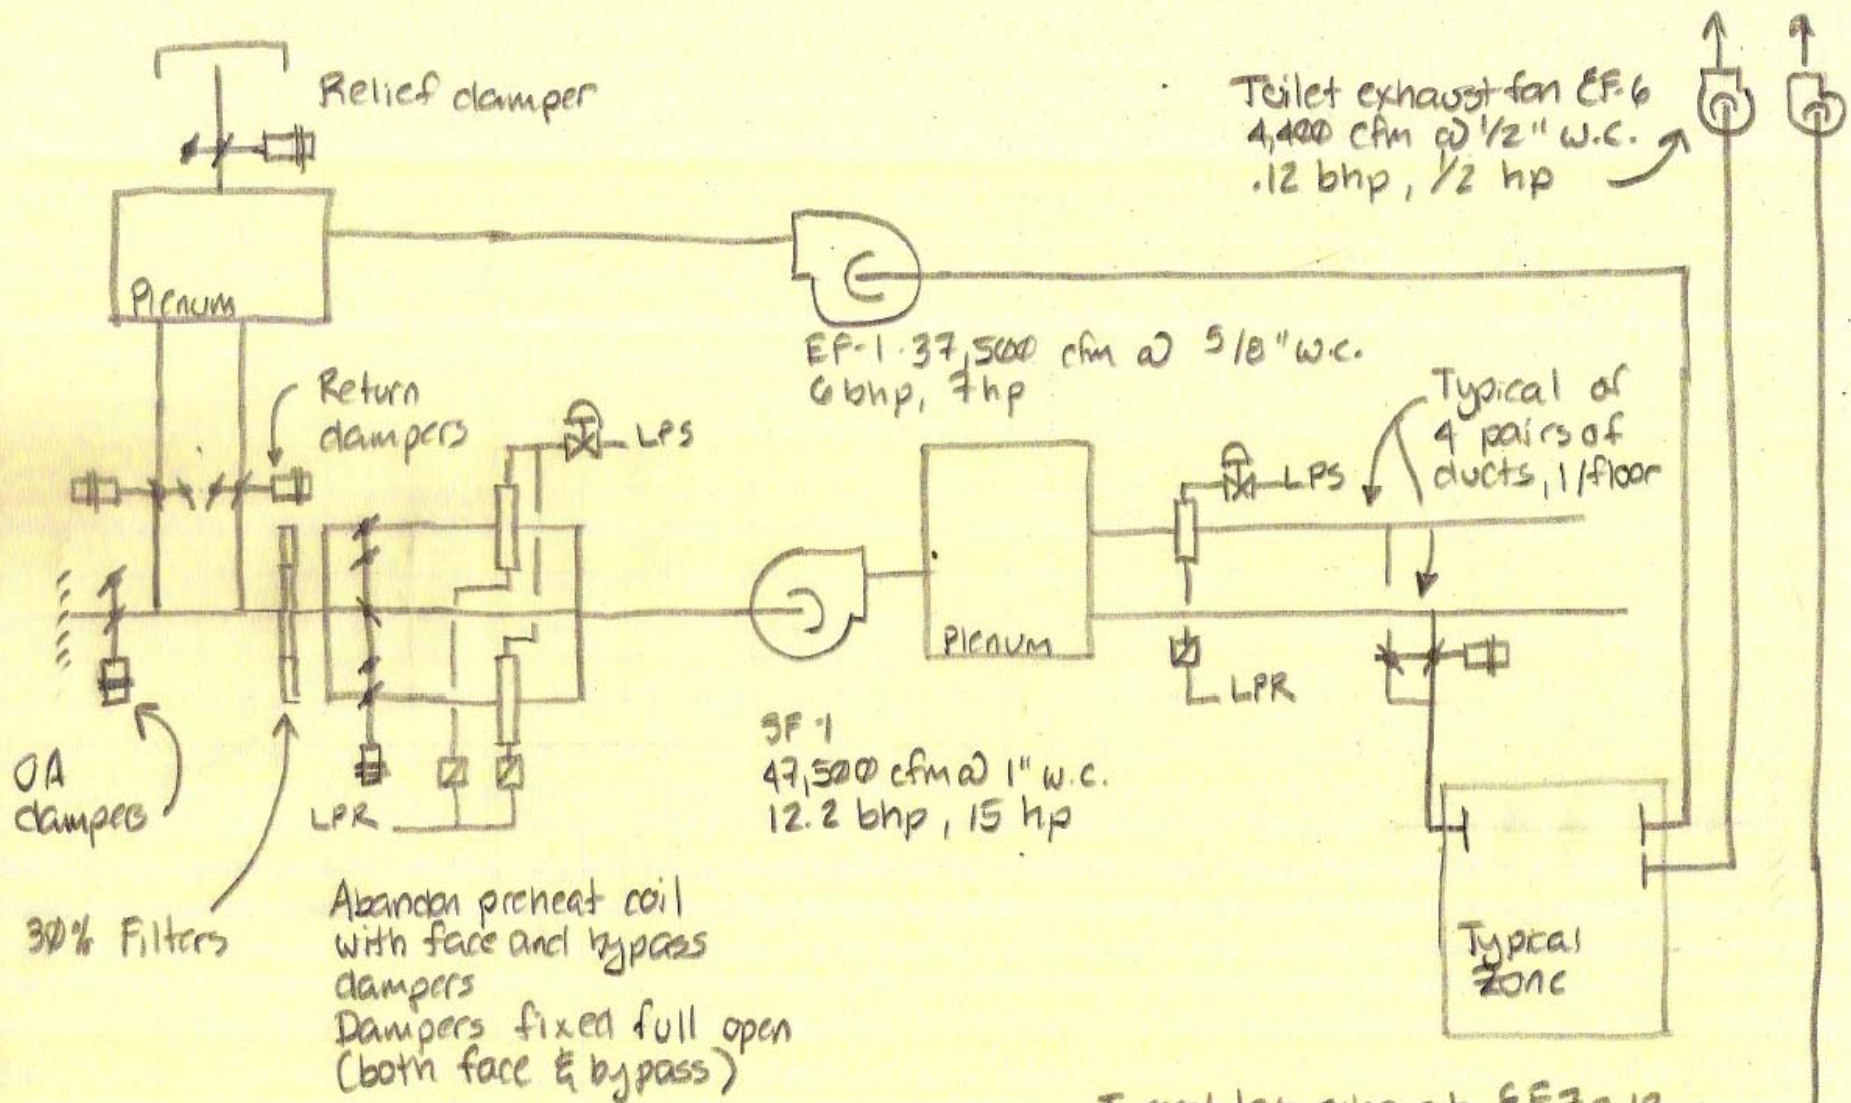 Relief damper
Toilet exhaust fan EF-6
4,400 cfm @ 1/2" w.c.
.12 bhp, 1/2 hp
Plenum
EF-1 37,500 cfm @ 5/8" w.c.
6 bhp, 7 hp
Return
dampers
LPS
Typical of
4 pairs of
ducts, 1/floor
LPS
Plenum
LPR
SF-1
47,500 cfm @ 1" w.c.
12.2 bhp, 15 hp
OA
dampers
LPR
30% Filters
Abandon preheat coil
with face and bypass
dampers
Dampers fixed full open
(both face & bypass)
Typical
Zone